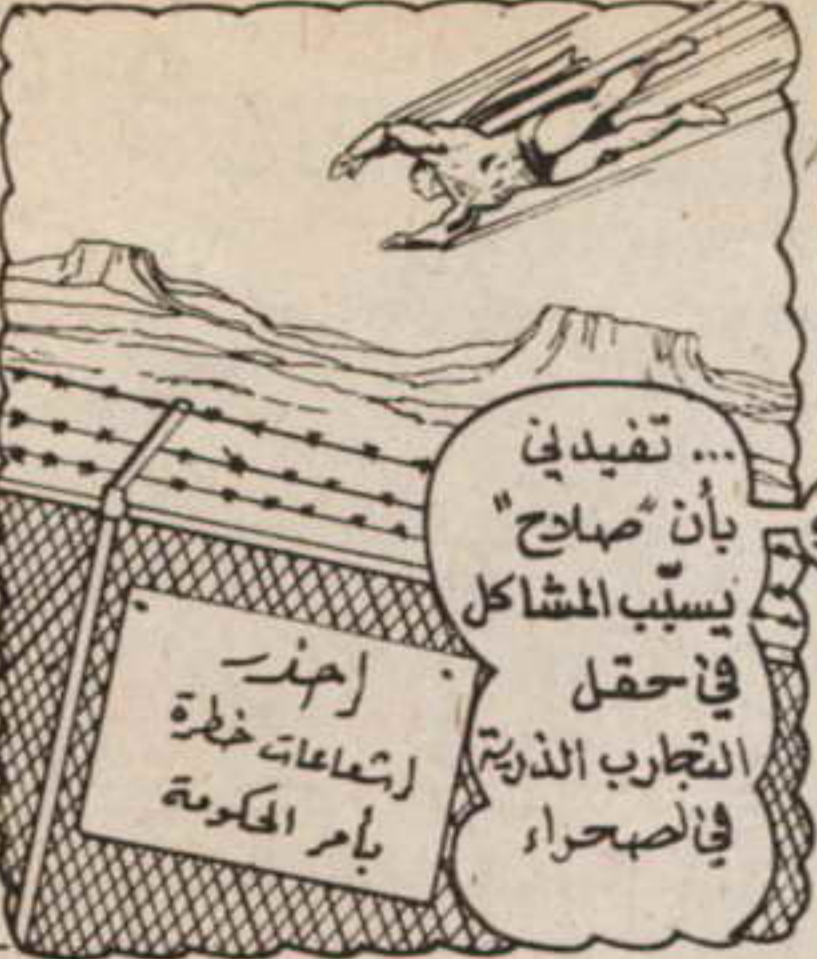 ... تفيدني
بأن "صلاح"
يسبّب المشاكل
في حقل
التجارب الذرية
في الصحراء
احذر
اشعاعات خطرة
بأمر الحكومة